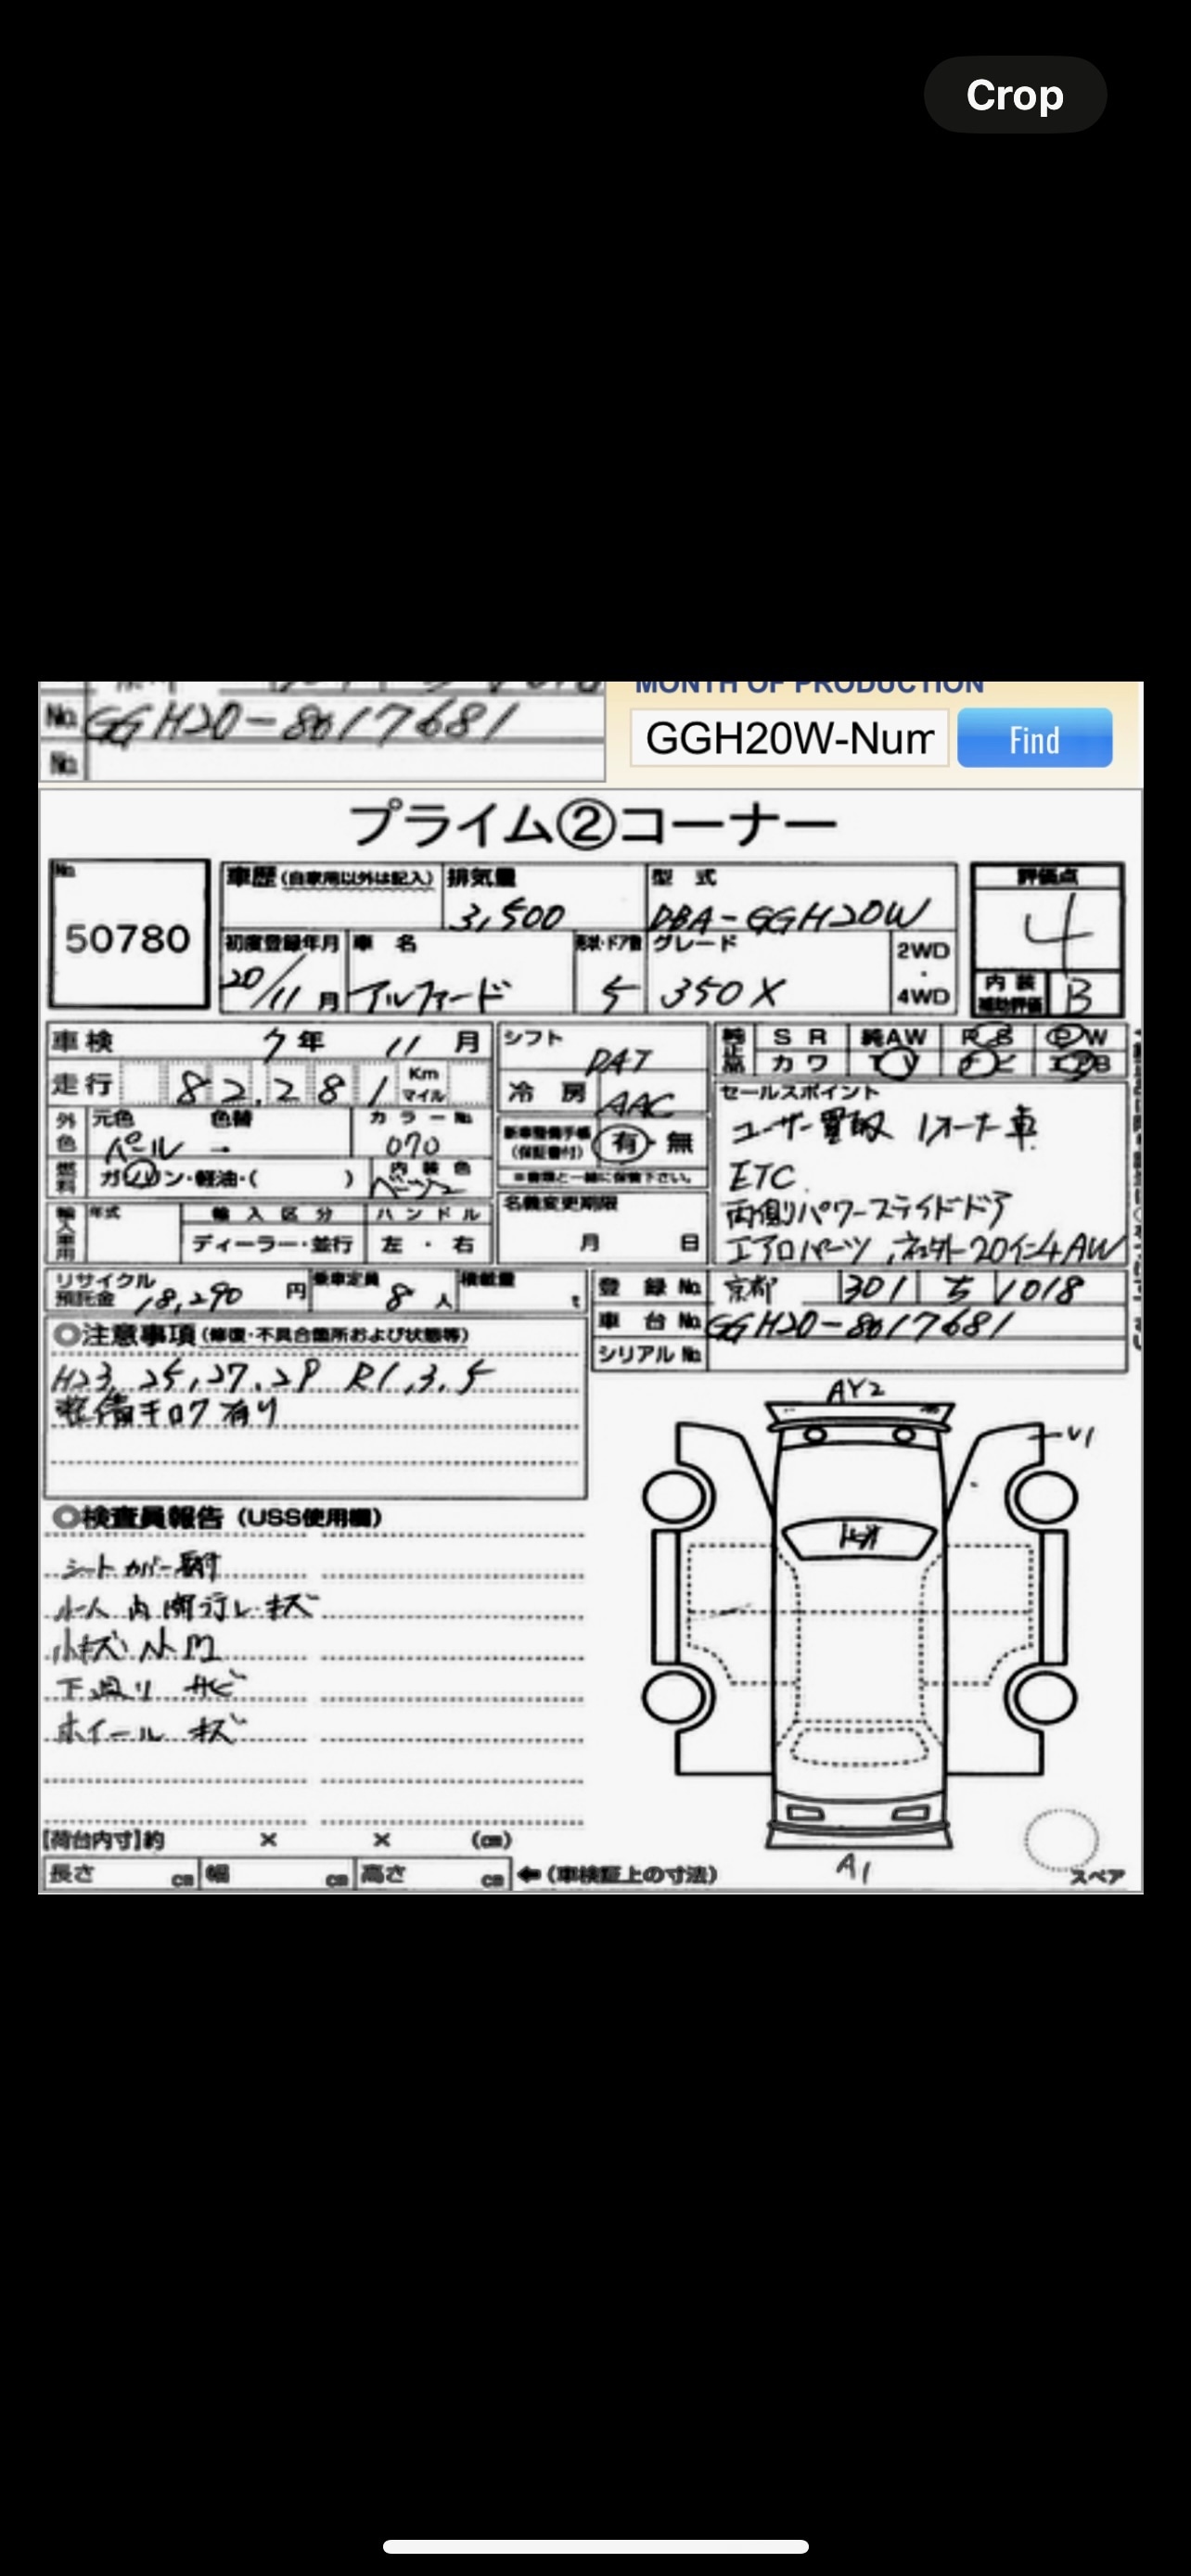 Crop
MONTH OF PRODUCTION
No. GGH20-8017681
GGH20W-Num
Find
No.
プライム②コーナー
No. 50780
車歴 (自家用以外は記入)
排気量 3,500
型式 DBA-GGH20W
評価点 4
初度登録年月 20/11月
車名 アルファード
形状・ドア数 5
グレード 350X
2WD・4WD
内装補助評価 B
車検 7年 11月
シフト DAT
純正品 SR 純AW PW
カワ TV
走行 82,281 Km マイル
冷房 AAC
セールスポイント
外色 元色 パール 色替 カラーNo. 070
新車整備手帳 (保証書付) 有・無
※書類と一緒に保管下さい。
ユーザー買取 1オーナー車
燃料 ガソリン・軽油・( ) 内装色 ベージュ
ETC
名義変更期限 月 日
両側パワースライドドア
輸入車用 年式 輸入区分 ディーラー・並行 ハンドル 左・右
エアロパーツ, 20インチAW
リサイクル預託金 18,290円 乗車定員 8人 積載量 t
登録No. 京都 301 ち 1018
車台No. GGH20-8017681
シリアルNo.
◎注意事項 (修復・不具合箇所および状態等)
H23, 25, 27, 29 R1, 3, 5
整備キロク有り
AY2
U1
◎検査員報告 (USS使用欄)
シートカバー
内 キズ
小キズ
下廻り サビ
ホイール キズ
【荷台内寸】約 × × (cm)
長さ cm 幅 cm 高さ cm ←(車検証上の寸法)
A1
スペア